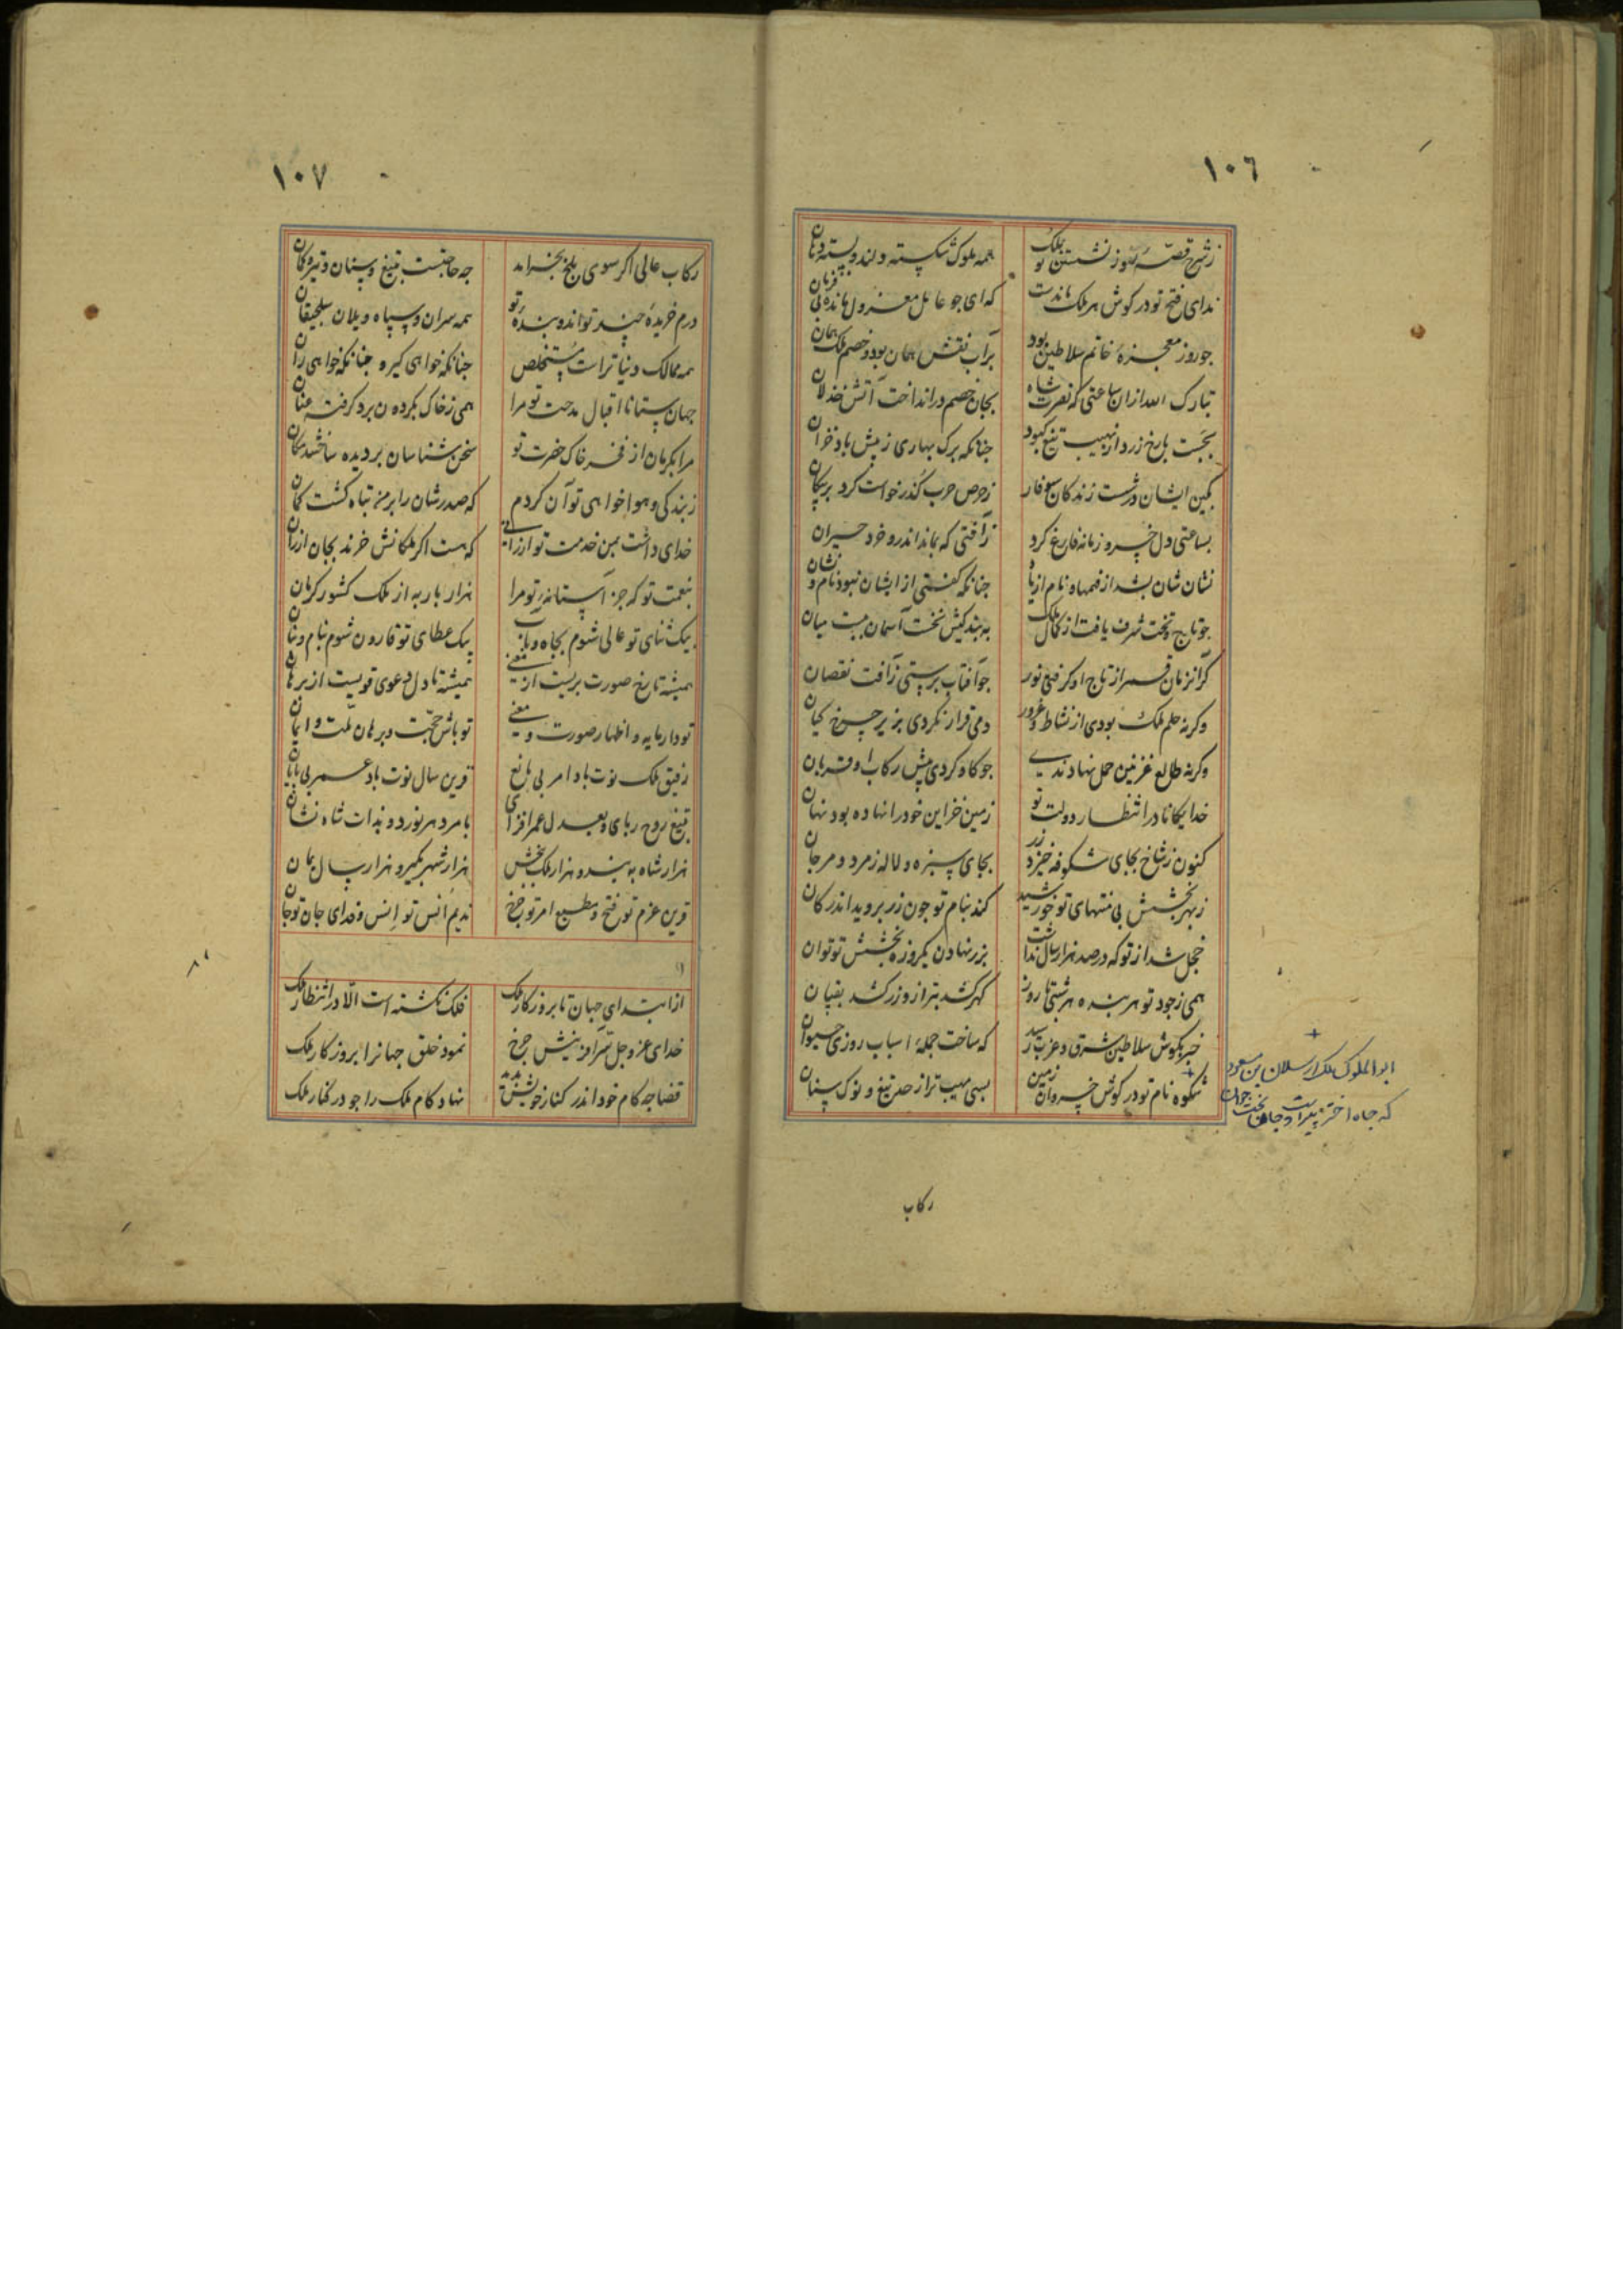 ١٠٦
ز شرح قصه تو وز نشستن تو بملک همه ملوک شکسته دلند و بسته دهان
ندای فتح تو در کوش هر ملک ماندست که ای جو عامل معزول مانده بی فرمان
جو روز معجزه خاتم سلاطین بود بر آب نقش همان بود و خصم ملک همان
تبارک الله ازان ساعتی که نصرت شاه بجان خصم در انداخت آتش خذلان
بجست با رخ زرد از نهیب تیغ کبود جنانکه برک بهاری ز پیش باد خزان
کمین ایشان در شست زندکان سوفار ز حرص حرب کذر خواست کرد بر پیکان
بساعتی دل خسرو زمانه فارغ کرد ز آفتی که بماند اندرو خرد حیران
نشان شان بشد از فهمها و نام از یاد جنانکه کفتی از ایشان نبود نام و نشان
جو تاج و تخت شرف یافت از کمال ملک به بندکیش تخت آسمان ببست میان
کر آنزمان قمر از تاج او کرفتی نور جو آفتاب برستی ز آفت نقصان
وکر نه حلم ملک بودی از نشاط و غرور دمی قرار نکردی بزیر جرخ کیان
وکر نه طالع غزنین حمل نهادندی جو کاو کردی پیش رکاب او قربان
خدایکانا در انتظار دولت تو زمین خزاین خود را نهاده بود نهان
کنون ز شاخ بجای شکوفه خیزد زر بجای سبزه و لاله زمرد و مرجان
ز بهر بخشش بی منتهای تو خورشید کند بنام تو جون زر بروید اندر کان
خجل شد از تو که در صد هزار سال نداشت بزر نهادن یکروزه بخشش تو توان
همی ز جود تو هر بنده هر شبی تا روز کهر کشد بترازو زر کشد بقپان
خبر بکوش سلاطین شرق و غرب رسید که ساخت جمله اسباب روزی حیوان
شکوه نام تو در کوش خسروان زمین بسی مهیب تر از حد تیغ و نوک سنان
ابو الملوک ملک ارسلان بن مسعود
که جاه اختر پیراست و جاه بخت جوان
رکاب
١٠٧
رکاب عالی اکر سوی بلخ بخرامد جه حاجتست بتیغ و سنان و تیر و کمان
درم خریده جند تواند و بنده تو همه سران و سپاه و یلان سلجقیان
همه ممالک دنیا تراست مستخلص جنانکه خواهی کیر و جنانکه خواهی ران
جهان ستانا اقبال مدحت تو مرا همی ز خاک بکردون برد کرفته عنان
مرا بکرمان از فخر خاک حضرت تو سخن شناسان بر دیده ساختند مکان
ز بندکی و هوا خواهی تو آن کردم که صدرشان را بر من تباه کشت کمان
خدای داشت بمن خدمت تو ارزانی که هست اکر ملکانش خرند بجان ارزان
بنعمت تو که جز آستانه در تو مرا هزار بار به از ملک کشور کرمان
بیک ثنای تو عالی شوم بجاه و بآب بیک عطای تو قارون شوم بنام و بنان
همیشه تا رخ صورت بریست از معنی همیشه تا دل دعوی قویست از برهان
تو دار مایه و اظهار صورت و معنی تو باش حجت و برهان ملت و ایمان
رفیق ملک نوت باد امر بی مانع قرین سال نوت باد عمر بی پایان
بتیغ روح ربای و بعدل عمر افزای بامر دهر نورد و بذات شاه نشان
هزار شاه ببند و هزار ملک ببخش هزار شهر بکیر و هزار سال بمان
قرین عزم تو فتح و مطیع امر تو جرخ ندیم انس تو انس و فدای جان تو جان
از ابتدای جهان تا بروزکار ملک فلک نکشته است الا در انتظار ملک
خدای عز و جل سر آفرینش جرخ نمود خلق جهانرا بروزکار ملک
قضا جه کام خود اندر کنار خویش ندید نهاد کام ملک را جو در کنار ملک